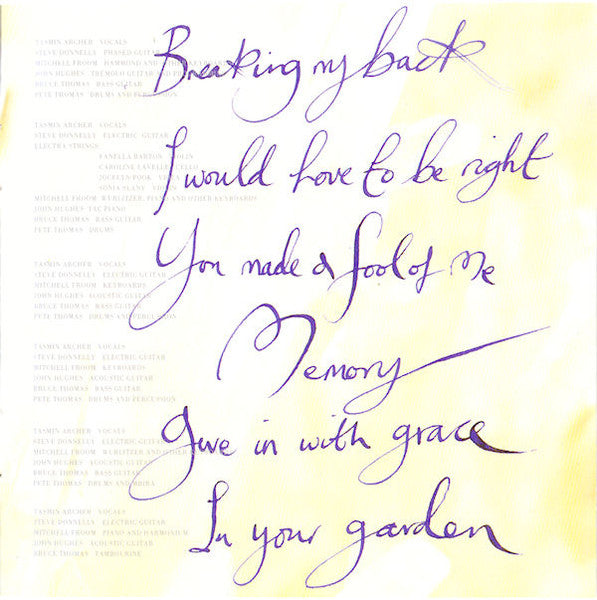 Breaking my back
TASMIN ARCHER VOCALS
STEVE DONNELLY PHASED GUITAR
MITCHELL FROOM HAMMOND AND
JOHN HUGHES TREMOLO GUITAR AND
BRUCE THOMAS BASS GUITAR
PETE THOMAS DRUMS AND PERCUSSION
I would love to be right
TASMIN ARCHER VOCALS
STEVE DONNELLY ELECTRIC GUITAR
ELECTRA STRINGS
CAROLINE LAVELLE CELLO
JOCELYN POOK
MITCHELL FROOM WURLITZER, PIANO AND OTHER KEYBOARDS
JOHN HUGHES
BRUCE THOMAS BASS GUITAR
PETE THOMAS DRUMS
You made a fool of me
TASMIN ARCHER VOCALS
STEVE DONNELLY ELECTRIC GUITAR
MITCHELL FROOM KEYBOARDS
JOHN HUGHES ACOUSTIC GUITAR
BRUCE THOMAS BASS GUITAR
PETE THOMAS DRUMS AND PERCUSSION
Memory
TASMIN ARCHER VOCALS
STEVE DONNELLY ELECTRIC GUITAR
MITCHELL FROOM KEYBOARDS
JOHN HUGHES ACOUSTIC GUITAR
BRUCE THOMAS BASS GUITAR
PETE THOMAS DRUMS AND PERCUSSION
Give in with grace
TASMIN ARCHER VOCALS
STEVE DONNELLY ELECTRIC GUITAR
MITCHELL FROOM WURLITZER AND OTHER KEYBOARDS
JOHN HUGHES ACOUSTIC GUITAR
BRUCE THOMAS BASS GUITAR
PETE THOMAS DRUMS AND MBIRA
In your garden
TASMIN ARCHER VOCALS
STEVE DONNELLY ELECTRIC GUITAR
MITCHELL FROOM PIANO AND HARMONIUM
JOHN HUGHES ACOUSTIC GUITAR
BRUCE THOMAS TAMBOURINE